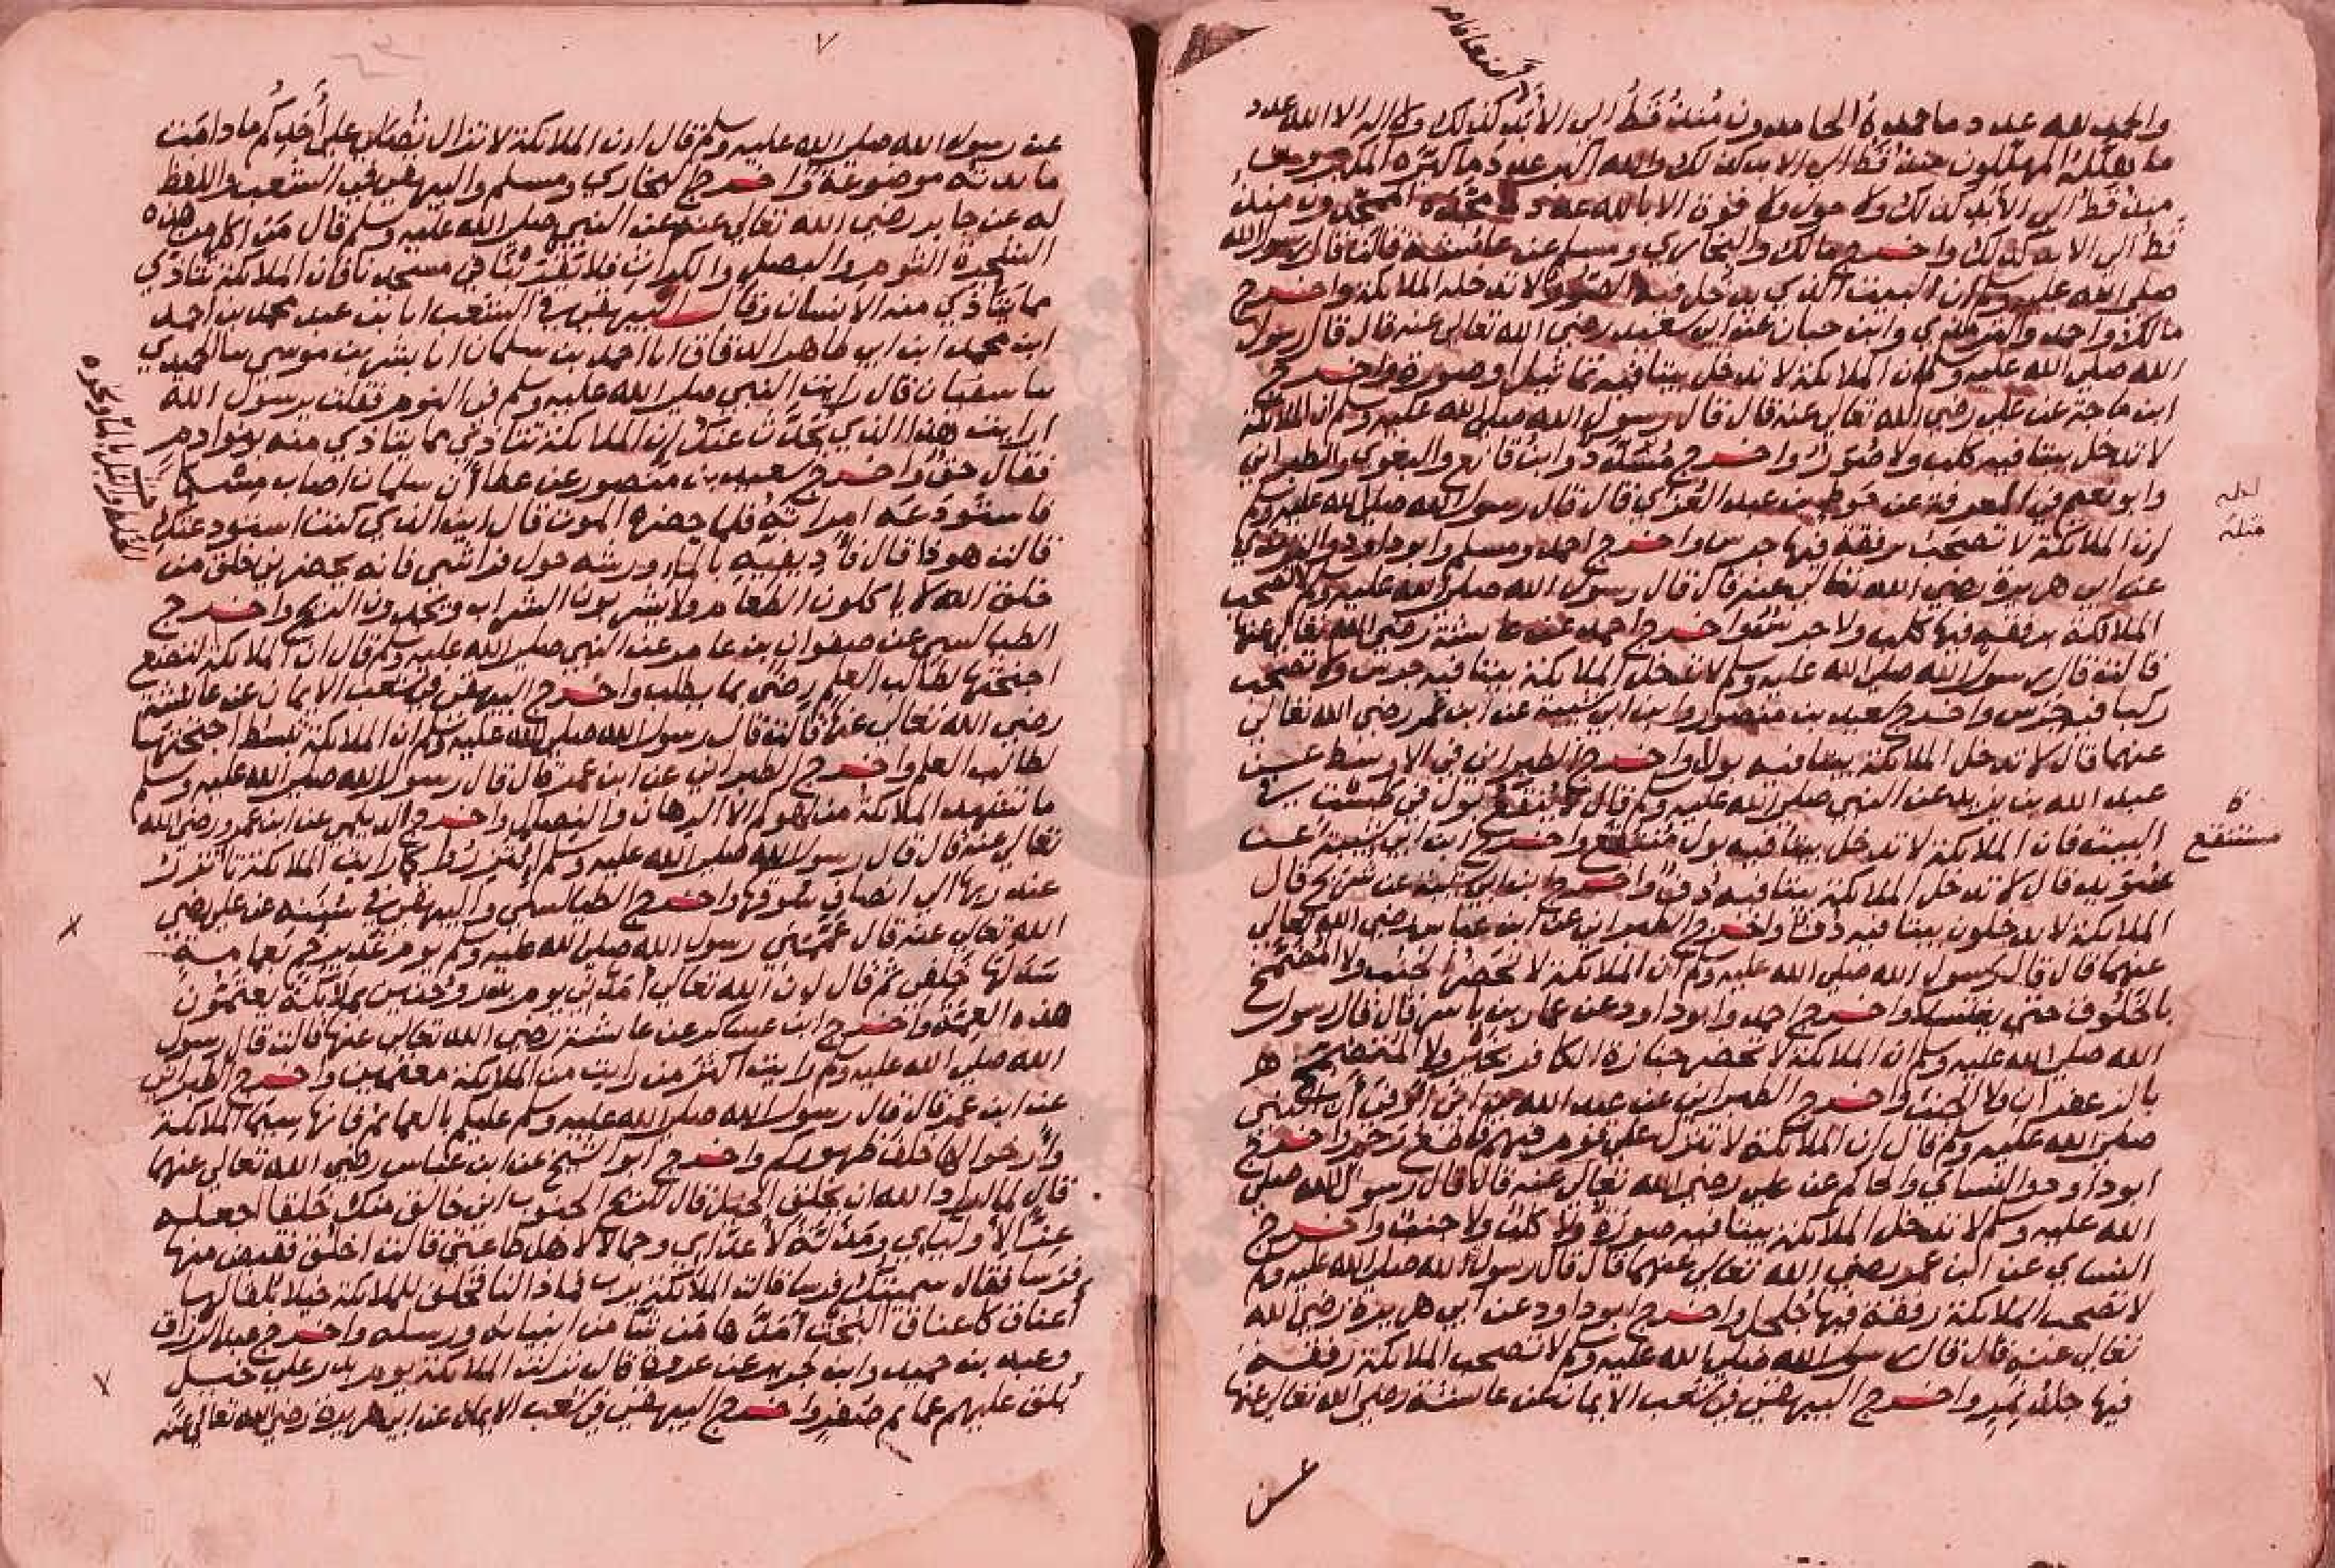 والحمد لله عدد ما حمده الحامدون منذ قط الى الابد كذلك ولا اله الا الله عدد
ما يهلله المهللون منذ قط الى الابد كذلك والله اكبر عدد ما كبره المكبرون
منذ قط الى الابد كذلك ولا حول ولا قوة الا بالله عدد ما مجده الممجدون منذ
قط الى الابد كذلك واخرج مالك والبخاري ومسلم عن عائشة قالت قال رسول الله
صلى الله عليه وسلم ان البيت الذي يدخل فيه الصور لا تدخله الملائكة واخرج
مالك واحمد والترمذي وابن حبان عن ابي سعيد رضي الله تعالى عنه قال قال رسول
الله صلى الله عليه وسلم ان الملائكة لا تدخل بيتا فيه تماثيل او صورة واخرج
ابن ماجة عن علي رضي الله تعالى عنه قال قال رسول الله صلى الله عليه وسلم ان الملائكة
لا تدخل بيتا فيه كلب ولا صورة واخرج مسدد وابن قانع والبغوي والطبراني
وابو نعيم في المعرفة عن حوط بن عبد العزي قال قال رسول الله صلى الله عليه وسلم
ان الملائكة لا تصحب رفقة فيها جرس واخرج احمد ومسلم وابو داود والترمذي
عن ابي هريرة رضي الله تعالى عنه قال قال رسول الله صلى الله عليه وسلم لا تصحب
الملائكة رفقة فيها كلب ولا جرس واخرج احمد عن عائشة رضي الله تعالى عنها
قالت قال رسول الله صلى الله عليه وسلم لا تدخل الملائكة بيتا فيه جرس ولا تصحب
ركبا فيه جرس واخرج سعيد بن منصور وابن ابي شيبة عن ابن عمر رضي الله تعالى
عنهما قال لا تدخل الملائكة بيتا فيه بول واخرج الطبراني في الاوسط عن
عبد الله بن يزيد عن النبي صلى الله عليه وسلم قال لا ينقع بول في طشت في
البيت فان الملائكة لا تدخل بيتا فيه بول منتقع واخرج ابن ابي شيبة عن
سويد قال لا تدخل الملائكة بيتا فيه دف واخرج ابن ابي شيبة عن شريح قال
الملائكة لا يدخلون بيتا فيه دف واخرج الطبراني عن ابن عباس رضي الله تعالى
عنهما قال قال رسول الله صلى الله عليه وسلم ان الملائكة لا تحضر الجنب ولا المتضمخ
بالخلوق حتى يغتسلا واخرج احمد وابو داود عن عمار بن ياسر قال قال رسول
الله صلى الله عليه وسلم ان الملائكة لا تحضر جنازة الكافر بخير ولا المتضمخ
بالزعفران ولا الجنب واخرج الطبراني عن عبد الله بن ابي اوفى ان النبي
صلى الله عليه وسلم قال ان الملائكة لا تنزل على قوم فيهم قاطع رحم واخرج
ابو داود والنسائي والحاكم عن علي رضي الله تعالى عنه قال قال رسول الله صلى
الله عليه وسلم لا تدخل الملائكة بيتا فيه صورة ولا كلب ولا جنب واخرج
النسائي عن ابن عمر رضي الله تعالى عنهما قال قال رسول الله صلى الله عليه وسلم
لا تصحب الملائكة رفقة فيها جلجل واخرج ابو داود عن ابي هريرة رضي الله
تعالى عنه قال قال رسول الله صلى الله عليه وسلم لا تصحب الملائكة رفقة
فيها جلد نمر واخرج البيهقي في شعب الايمان عن عائشة رضي الله تعالى عنها
مستنقع
عن
٧
عن رسول الله صلى الله عليه وسلم قال ان الملائكة لا تزال تصلي على احدكم ما دامت
مائدته موضوعة واخرج البخاري ومسلم والبيهقي في الشعب واللفظ
له عن جابر رضي الله تعالى عنه عن النبي صلى الله عليه وسلم قال من اكل من هذه
الشجرة الثوم والبصل والكراث فلا يقربنا في مسجدنا فان الملائكة تتاذي
مما يتاذي منه الانسان وقال البيهقي في الشعب انا بن عبد محمد بن احمد
ابن محمد ابن ابي طاهر الدقاق انا احمد بن سلمان انا بشر بن موسى سا الحميدي
سا سفيان قال رايت النبي صلى الله عليه وسلم في النوم فقلت يرسول الله
ارايت هذا الذي يحدث عنك ان الملائكة تتاذي مما يتاذي منه بنوا ادم
فقال حق واخرج سعيد بن منصور عن عطا ان سلمان اصاب مسكا
فاستودعه امراته فلما حضره الموت قال اين الذي كنت استودعتك
قالت هوذا قال فاديفيه بالماء ورشه حول فراشي فانه يحضرني خلق من
خلق الله لا ياكلون الطعام ولا يشربون الشراب ويجدون الريح واخرج
الطيالسي عن صفوان بن عامر عن النبي صلى الله عليه وسلم قال ان الملائكة لتضع
اجنحتها لطالب العلم رضى بما يطلب واخرج البيهقي في شعب الايمان عن عائشة
رضي الله تعالى عنها قالت قال رسول الله صلى الله عليه وسلم ان الملائكة تبسط اجنحتها
لطالب العلم واخرج الطبراني عن ابن عمر قال قال رسول الله صلى الله عليه وسلم
ما تشهد الملائكة من لهوكم الا الرهان والنضال واخرج الديلمي عن ابن عمرو رضي الله
تعالى عنه قال قال رسول الله صلى الله عليه وسلم ائتزروا كما رايت الملائكة تاتزر
عند ربها الى انصاف سوقها واخرج الطيالسي والبيهقي في سننه عن علي رضي
الله تعالى عنه قال عممني رسول الله صلى الله عليه وسلم يوم غدير خم بعمامة
سدلها خلفي ثم قال ان الله تعالى امدني يوم بدر وحنين بملائكة يعتمون
هذه العمة واخرج ابن عساكر عن عائشة رضي الله تعالى عنها قالت قال رسول
الله صلى الله عليه وسلم رايت اكثر من رايت من الملائكة معتمين واخرج الطبراني
عن ابن عمر قال قال رسول الله صلى الله عليه وسلم عليكم بالعمائم فانها سيما الملائكة
وارخوا لها خلف ظهوركم واخرج ابو الشيخ عن ابن عباس رضي الله تعالى عنهما
قال لما اراد الله ان يخلق الخيل قال للريح الجنوب اني خالق منك خلقا اجعله
عزا لاوليائي ومذلة لاعدائي وجمالا لاهل طاعتي قالت اخلق فقبض منها
فرسا فقال سميتك فرسا قالت الملائكة يرب فماذا لنا فخلق للملائكة خيلا بلقا لها
اعناق كاعناق البخت امد بها من شا من انبيائه ورسله واخرج عبد الرزاق
وعبد بن حميد وابن جرير عن عروة قال نزلت الملائكة يوم بدر على خيل
بلق عليهم عمائم صفر واخرج البيهقي في شعب الايمان عن ابي هريرة رضي الله تعالى عنه